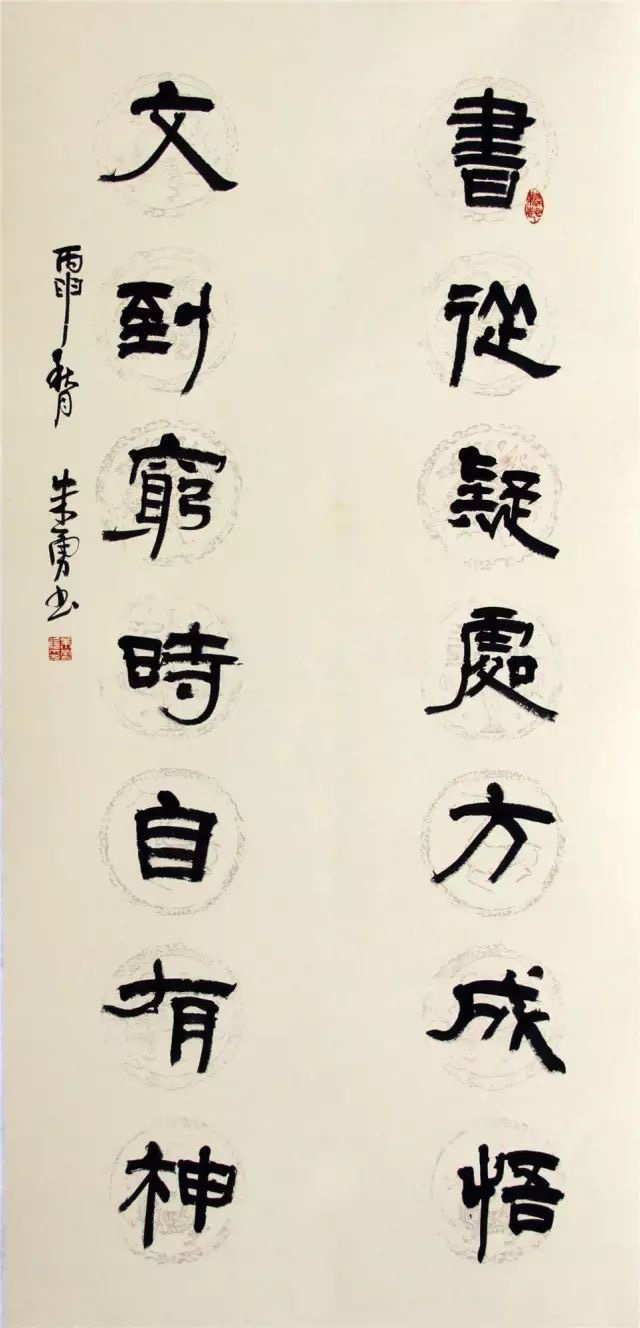 書從疑處方成悟
文到窮時自有神
丙申秋月 朱勇书